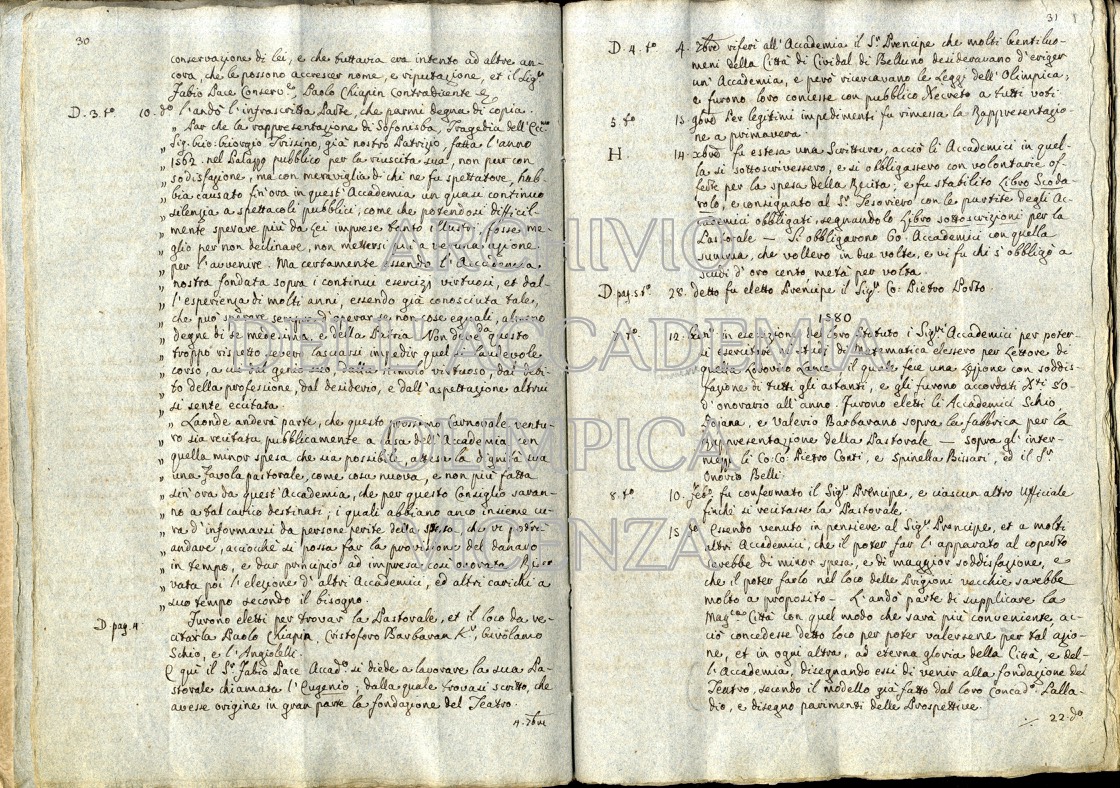 30
conservazione di lei, e che tuttavia era intento ad altre an-
cora, che le possono accrescer nome, e riputazione, et il Sigr
Fabio Pace Conserv.r, Paolo Chiapin Contradicente &
D. 3. to 10. do l'andò l'infrascritta Parte, che parmi degna di copia.
„ Par che la rappresentazione di Sofonisba, Tragedia dell'Ecc.mo
„ Sig. Gio: Giorgio Trissino, già nostro Patrizio, fatta l'anno
„ 1562. nel Palazzo pubblico per la riuscita sua, non pur con
„ sodisfazione, ma con meraviglia di chi ne fu spettatore, hab-
„ bia causato fin'ora in quest'Accademia un quasi continuo
„ silenzio a spettacoli pubblici; come che potendosi difficil-
„ mente sperare più da Lei imprese tanto illustri, fosse me-
„ glio per non declinare, non mettersi più a veruna azione
„ per l'avvenire. Ma certamente essendo l'Accademia
„ nostra fondata sopra i continui esercizj virtuosi, et dal-
„ l'esperienza di molti anni, essendo già conosciuta tale,
„ che può sperare sempre d'operar se non cose eguali, almeno
„ degne di se medesima, e della Patria. Non deve da questo
„ troppo rispetto lasciarsi impedir quel laudevole
„ corso, a cui dal genio suo, dallo stimulo virtuoso, dal debi-
„ to della professione, dal desiderio, e dall'aspettazione altrui
„ si sente eccitata.
„ Laonde anderà parte, che questo prossimo Carnovale ventu-
„ ro sia recitata pubblicamente a casa dell'Accademia con
„ quella minor spesa che sia possibile, attesa la dignità sua
„ una Favola pastorale, come cosa nuova, e non più fatta
„ sin'ora da quest'Accademia, che per questo Consiglio saran-
„ no a tal carico destinati; i quali abbiano anco insieme cu-
„ ra d'informarsi da persone perite della spesa, che vi potrà
„ andare, acciocchè si possa far la provisione del danaro
„ in tempo, e dar principio ad impresa così onorata. Riser-
„ vata poi l'elezione d'altri Accademici, ed altri carichi a
„ suo tempo secondo il bisogno.
D. pag. 4. Furono eletti per trovar la Pastorale, et il loco da re-
citarla Paolo Chiapin, Cristoforo Barbaran Kr, Girolamo
Schio, e l'Angiolelli.
E quì il Sr Fabio Pace Accad.o si diede a lavorare la sua Pa-
storale chiamata l'Eugenio; dalla quale trovasi scritto, che
avesse origine in gran parte la fondazione del Teatro.
4. 7bre
31
D. 4. to 4. 7bre riferì all'Accademia il Sr Prencipe che molti Gentiluo-
meni della Città di Cividal di Belluno desideravano d'eriger
un'Accademia, e però ricercavano le Leggi dell'Olimpica;
e furono loro concesse con pubblico Decreto a tutti voti.
5. to 15. 9bre Per legitimi impedimenti fu rimessa la Rappresentazio-
ne a primavera.
H. 14. xbre fu estesa una Scrittura, acciò li Accademici in quel-
la si sottoscrivessero, e si obbligassero con volontarie of-
ferte per la spesa della Recita; e fu stabilito Libro Scoda
rolo, e consignato al Sr Tesoriero con le partite degli Ac-
cademici obbligati, segnandolo Libro sottoscrizioni per la
Pastorale — Si obbligarono 60. Accademici con quella
summa, che vollero in due volte, e vi fu chi s'obbligò a
scudi d'oro cento metà per volta.
D. pag. 5. to 28. detto fu eletto Prencipe il Sigr Co: Pietro Porto.
1580
7. to 10. Genn.o in esecuzione del loro Statuto i Sig.ri Accademici per poter-
si esercitare di Matematica elessero per Lettore di
questa Lodovico Lance il quale fece una Lezione con soddis-
fazione di tutti gli astanti, e gli furono accordati Xti 50
d'onorario all'anno. Furono eletti li Accademici Schio,
Fojana, e Valerio Barbarano sopra la fabbrica per la
Rappresentazione della Pastorale — Sopra gl'inter-
mezzi li Co: Co: Pietro Conti, e Spinella Bissari, ed il Sr
Onorio Belli.
8. to 10. Feb.o fu confermato il Sigr Prencipe, e ciascun altro Ufficiale
finchè si recitasse la Pastorale.
15. do Essendo venuto in pensiere al Sigr Prencipe, et a molti
altri Accademici, che il poter far l'apparato al coperto
sarebbe di minor spesa, e di maggior soddisfazione, e
che il poter farlo nel loco delle Prigioni vecchie sarebbe
molto a proposito — L'andò parte di supplicare la
Mag.ca Città con quel modo che sarà più conveniente, ac-
ciò concedesse detto loco per poter valersene per tal azio-
ne, et in ogni altra, ad eterna gloria della Città, e del-
l'Accademia, disegnando essi di venir alla fondazione del
Teatro, secondo il modello già fatto dal loro Concad.o Palla-
dio, e disegno parimenti delle Prospettive.
22. do
ARCHIVIO
DELL'ACCADEMIA
OLIMPICA
VICENZA